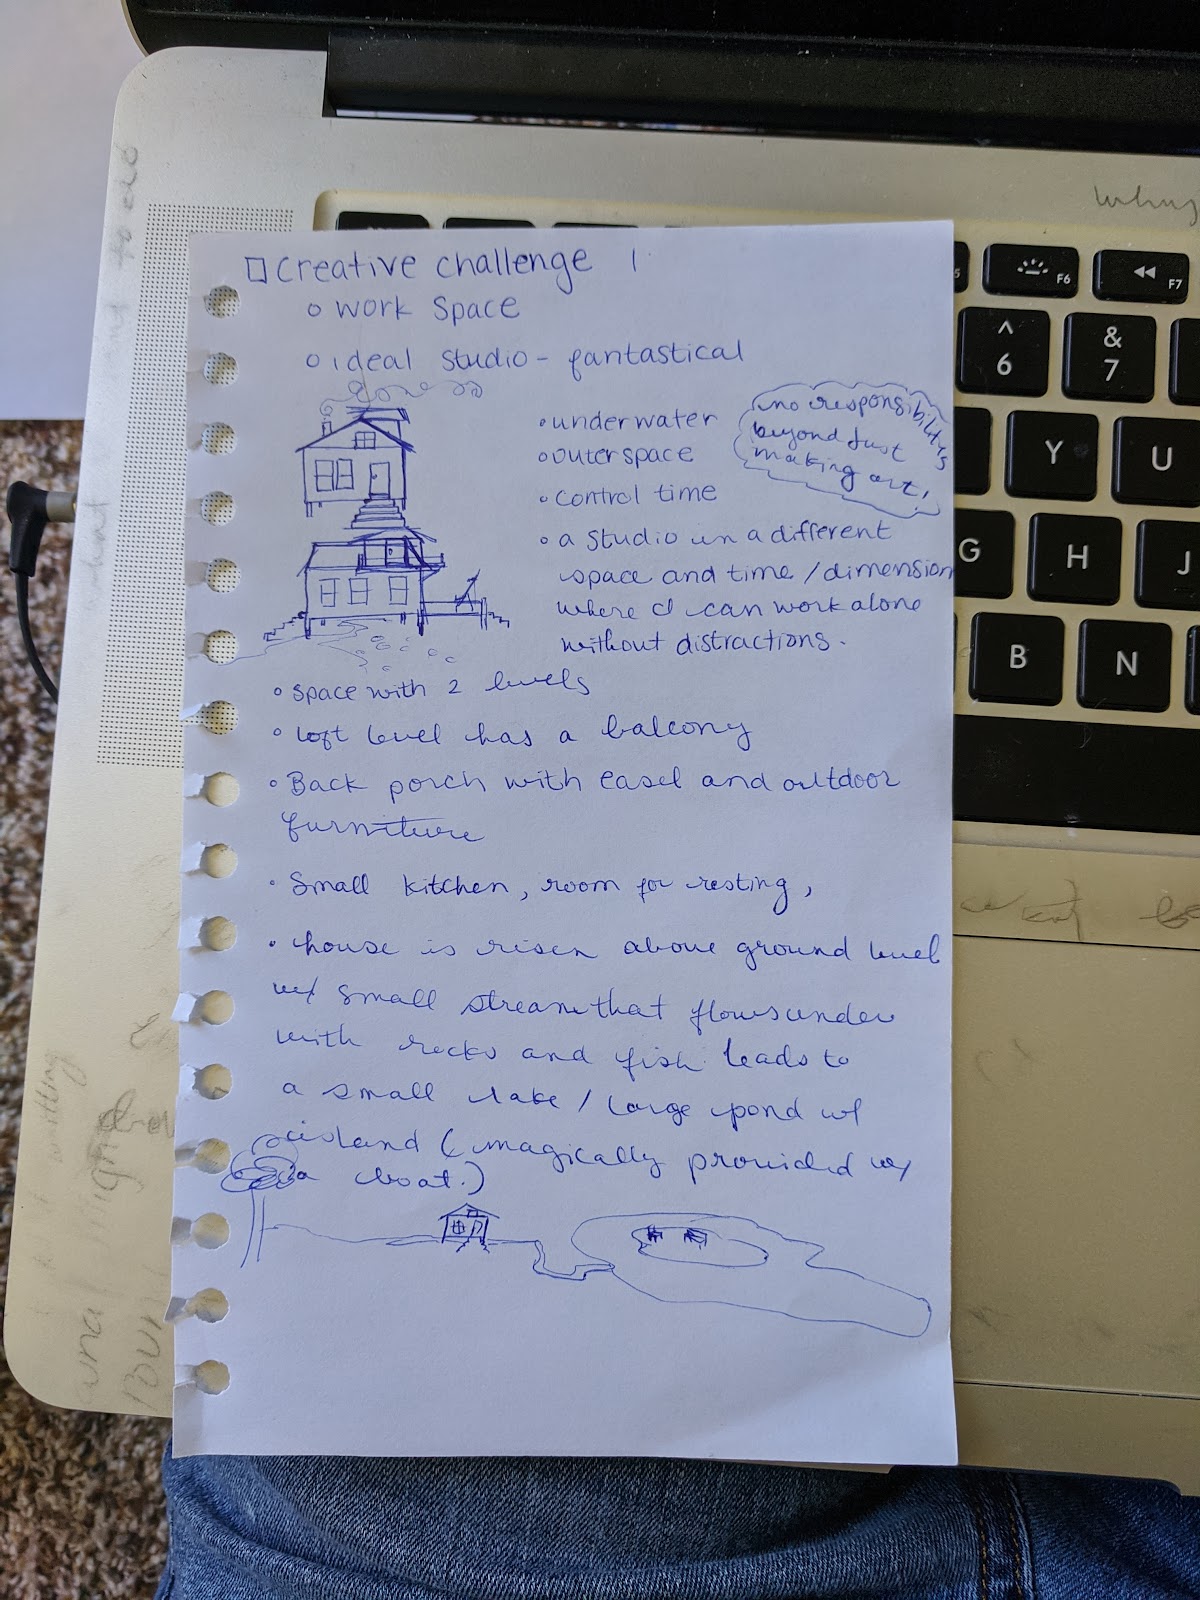 □ Creative challenge 1
o Work Space
o ideal studio - fantastical
• underwater
• outerspace
• control time
• a studio in a different
space and time / dimension
where I can work alone
without distractions.
no responsibilitys
beyond just
making art!
• space with 2 levels
• loft level has a balcony
• Back porch with easel and outdoor
furniture
• Small kitchen, room for resting,
• house is risen above ground level
w/ small stream that flows under
with rocks and fish leads to
a small lake / large pond w/
island (magically provided w/
a boat.)
F6
F7
^
6
&
7
Y
U
G
H
J
B
N